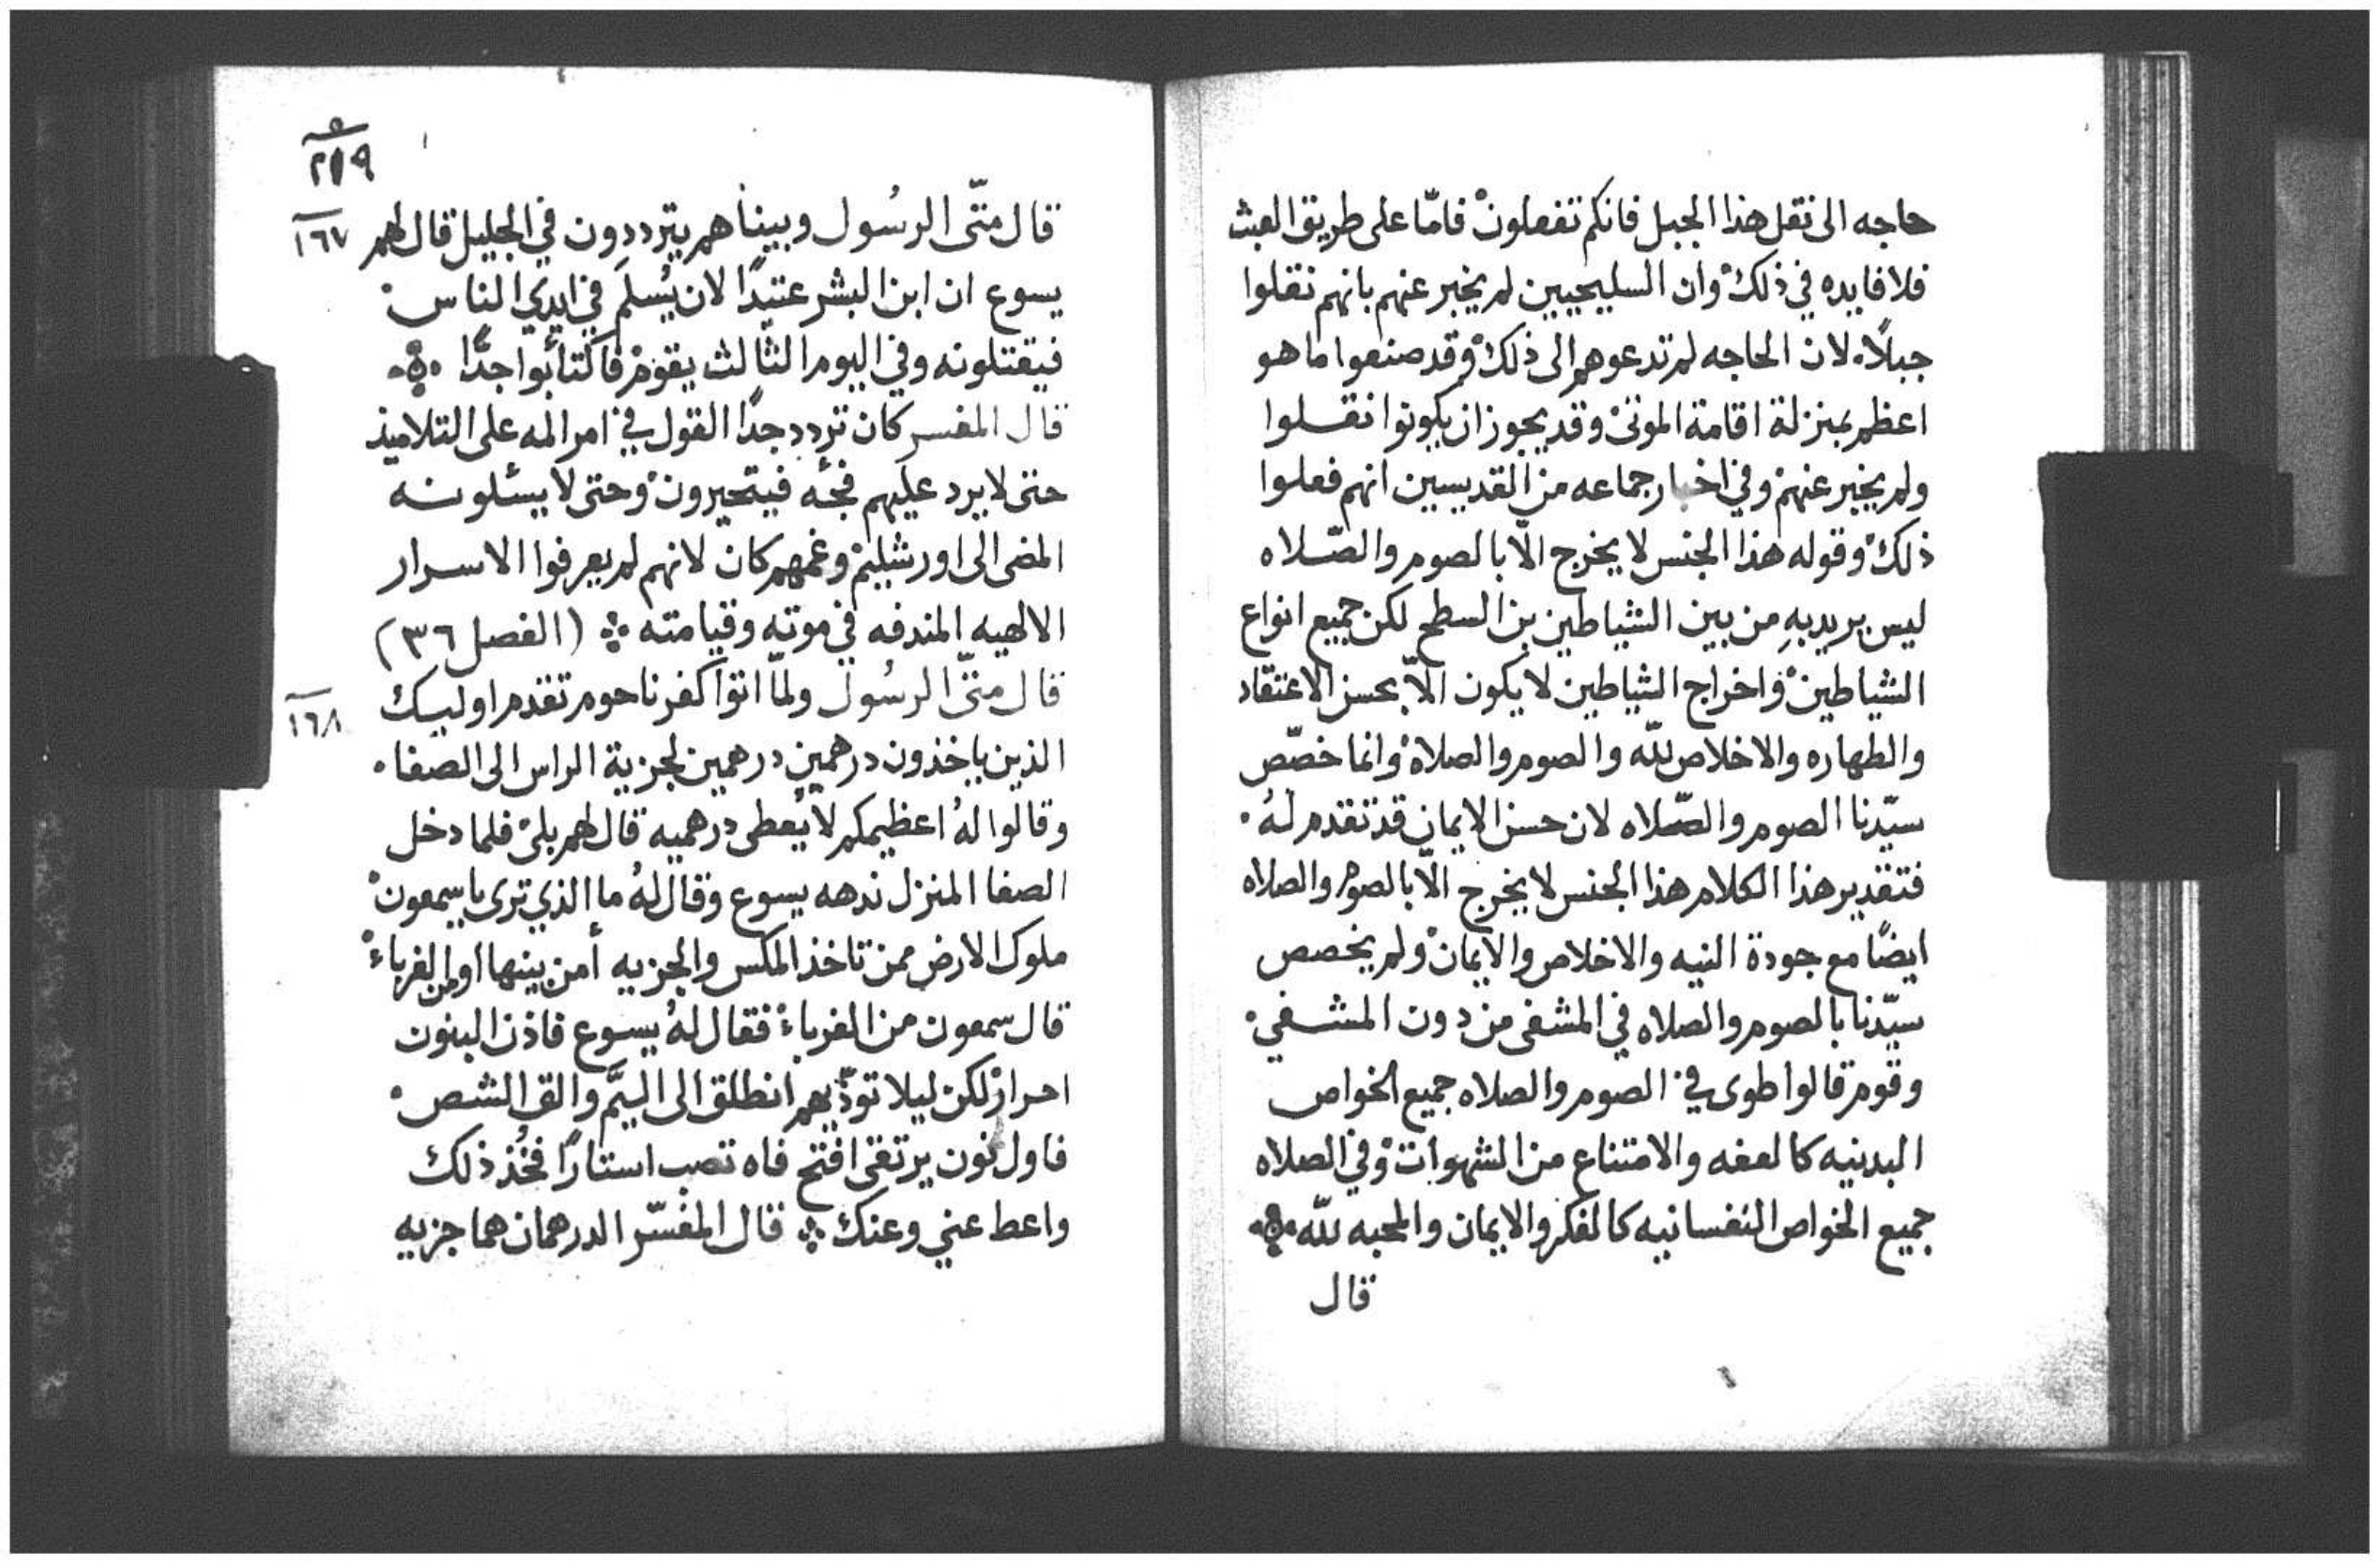 حاجه الى نقل هذا الجبل فانكم تفعلون فامّا على طريق العبث
فلا فايده في ذلك وان السليحيين لم يخبر عنهم بانهم نقلوا
جبلاً لان الحاجه لم تدعوهم الى ذلك وقد صنعوا ما هو
اعظم بمنزلة اقامة الموتى وقد يجوز ان يكونوا نقلوا
ولم يخبر عنهم وفي اخبار جماعه من القديسين انهم فعلوا
ذلك وقوله هذا الجنس لا يخرج الّا بالصوم والصّلاه
ليس يريد بهِ من بين الشياطين بن السطح لكن جميع انواع
الشياطين واخراج الشياطين لا يكون الّا بحسن الاعتقاد
والطهاره والاخلاص للّه والصوم والصلاة وانما خصّص
سيّدنا الصوم والصّلاه لان حسن الايمان قد تقدم لهُ
فتقدير هذا الكلام هذا الجنس لا يخرج الّا بالصوم والصلاه
ايضًا مع جودة النيه والاخلاص والايمان ولم يخصص
سيّدنا بالصوم والصلاه في المشفى من دون المشفي
وقوم قالوا طوى في الصوم والصلاه جميع الخواص
البدنيه كالعفه والامتناع من الشهوات وفي الصلاه
جميع الخواص النفسانيه كالفكر والايمان والمحبه للّه
قال
٢١٩
قال متّى الرسُول وبيناهم يترددون في الجليل قال لهم ١٦٧
يسوع ان ابن البشر عتيدًا لان يُسلَم في ايدي الناس
فيقتلونه وفي اليوم الثّالث يقوم فاكتأبوا جدًّا
قال المفسر كان تردد جدًا القول في امر المه على التلاميذ
حتى لا يرد عليهم فجئه فيتحيرون وحتى لا يسئلونه
المضى الى اورشليم وغمهم كان لانهم لم يعرفوا الاسرار
الالهيه المندفه في موته وقيامته (الفصل ٣٦)
قال متّى الرسُول ولمّا اتوا كفرناحوم تقدم اوليك ١٦٨
الذين ياخذون درهمين درهمين لجزية الراس الى الصفا
وقالوا لهُ اعظيمكم لا يُعطى درهميه قال لهم بلى فلما دخل
الصفا المنزل ندهه يسوع وقال لهُ ما الذي ترى يا سمعون
ملوك الارض ممن تاخذ المكس والجزيه أمن بينها او من الغرباء
قال سمعون من الغرباء فقال لهُ يسوع فاذن البنون
احرار لكن ليلا توذّيهم انطلق الى اليَّم والق الشص
فاول نون يرتقى افتح فاه تصب استارًا فخُذ ذلك
واعط عني وعنك قال المفسّر الدرهمان هما جزيه